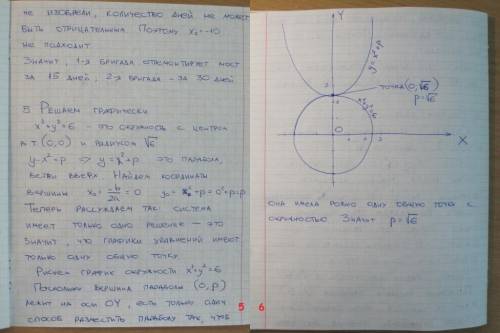 не изобрели, количество дней не может
быть отрицательным Поэтому x₂=-10
не подходит.
Значит, 1-я бригада отремонтирует мост
за 15 дней, 2-я бригада - за 30 дней
5 Решаем графически
x²+y²=6 - это окружность с центром
в т.(0,0) и радиусом √6
y-x²=p => y=x²+p это парабола,
ветви вверх. Найдем координаты
вершины x₀=-b/2a=0 y₀=x₀²+p=0²+p=p
Теперь рассуждаем так: система
имеет только одно решение - это
значит, что графики уравнений имеют
только одну общую точку.
Рисуем график окружности x²+y²=6
Поскольку вершина параболы (0,p)
лежит на оси OY, есть только один
способ разместить параболу так, чтоб
5
Y
y=x²+p
точка(0;√6)
p=√6
x²+y²=6
O
X
она имела ровно одну общую точку с
окружностью Значит p=√6
6